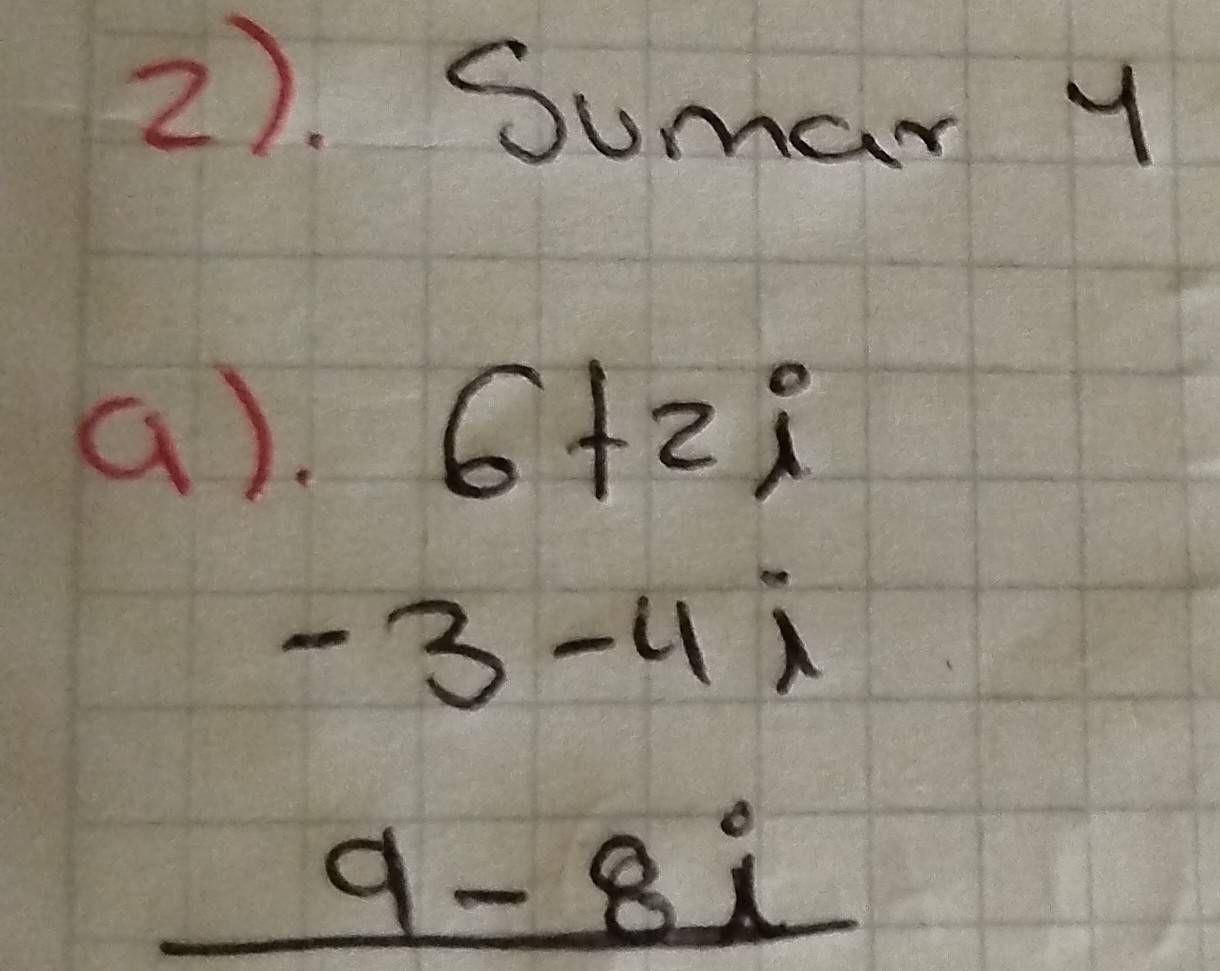 2). Sumar y
a). 6+2i
-3-4i
9-8i